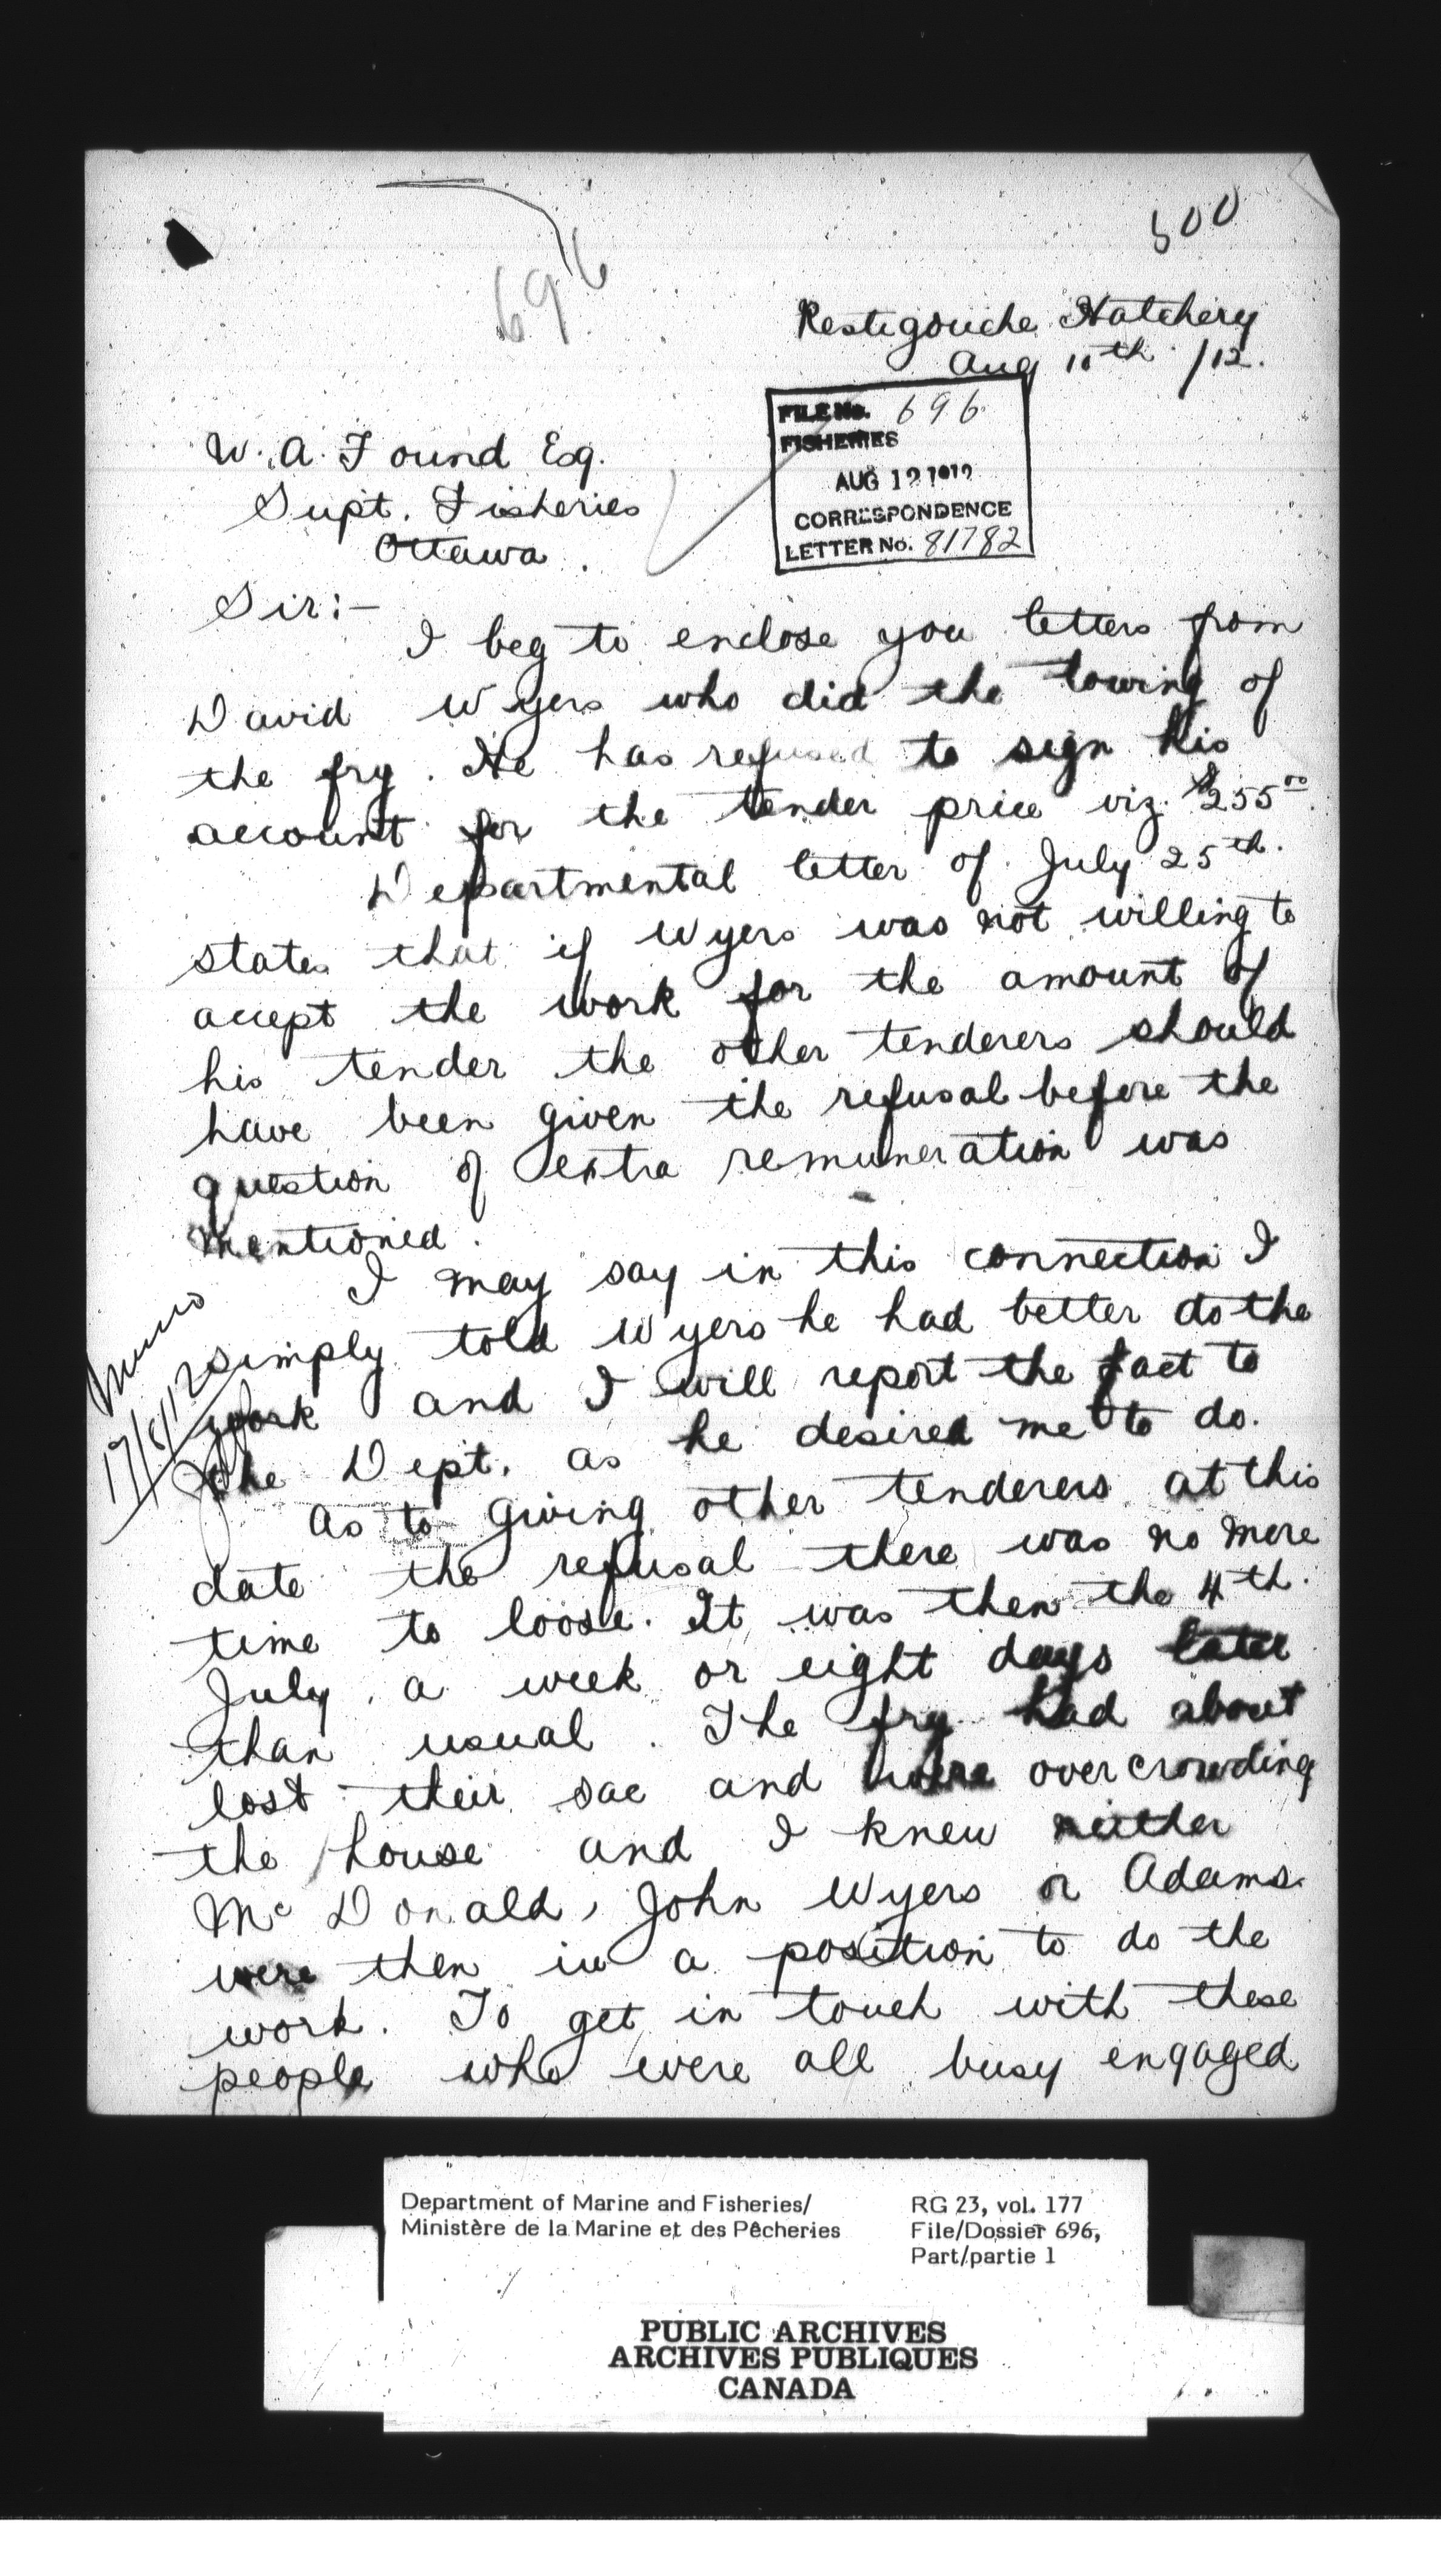 500
696
Restigouche Hatchery
Aug 10th /12.
FILE No. 696
FISHERIES
AUG 12 1912
CORRESPONDENCE
LETTER No. 81782
W. A. Found Esq.
Supt. Fisheries
Ottawa.
Sir:—
I beg to enclose you letters from
David Wyers who did the towing of
the fry. He has refused to sign his
account for the tender price viz. $255.00.
Departmental letter of July 25th.
states that if Wyers was not willing to
accept the work for the amount of
his tender the other tenderers should
have been given the refusal before the
question of extra remuneration was
mentioned.
I may say in this connection I
simply told Wyers he had better do the
work and I will report the fact to
the Dept. as he desired me to do.
Memo
17/8/12
As to giving other tenderers at this
date the refusal there was no more
time to loose. It was then the 4th.
July, a week or eight days later
than usual. The fry had about
lost their sac and were overcrowding
the house and I knew neither
McDonald, John Wyers or Adams
were then in a position to do the
work. To get in touch with these
people who were all busy engaged
Department of Marine and Fisheries/
Ministère de la Marine et des Pêcheries
RG 23, vol. 177
File/Dossier 696,
Part/partie 1
PUBLIC ARCHIVES
ARCHIVES PUBLIQUES
CANADA